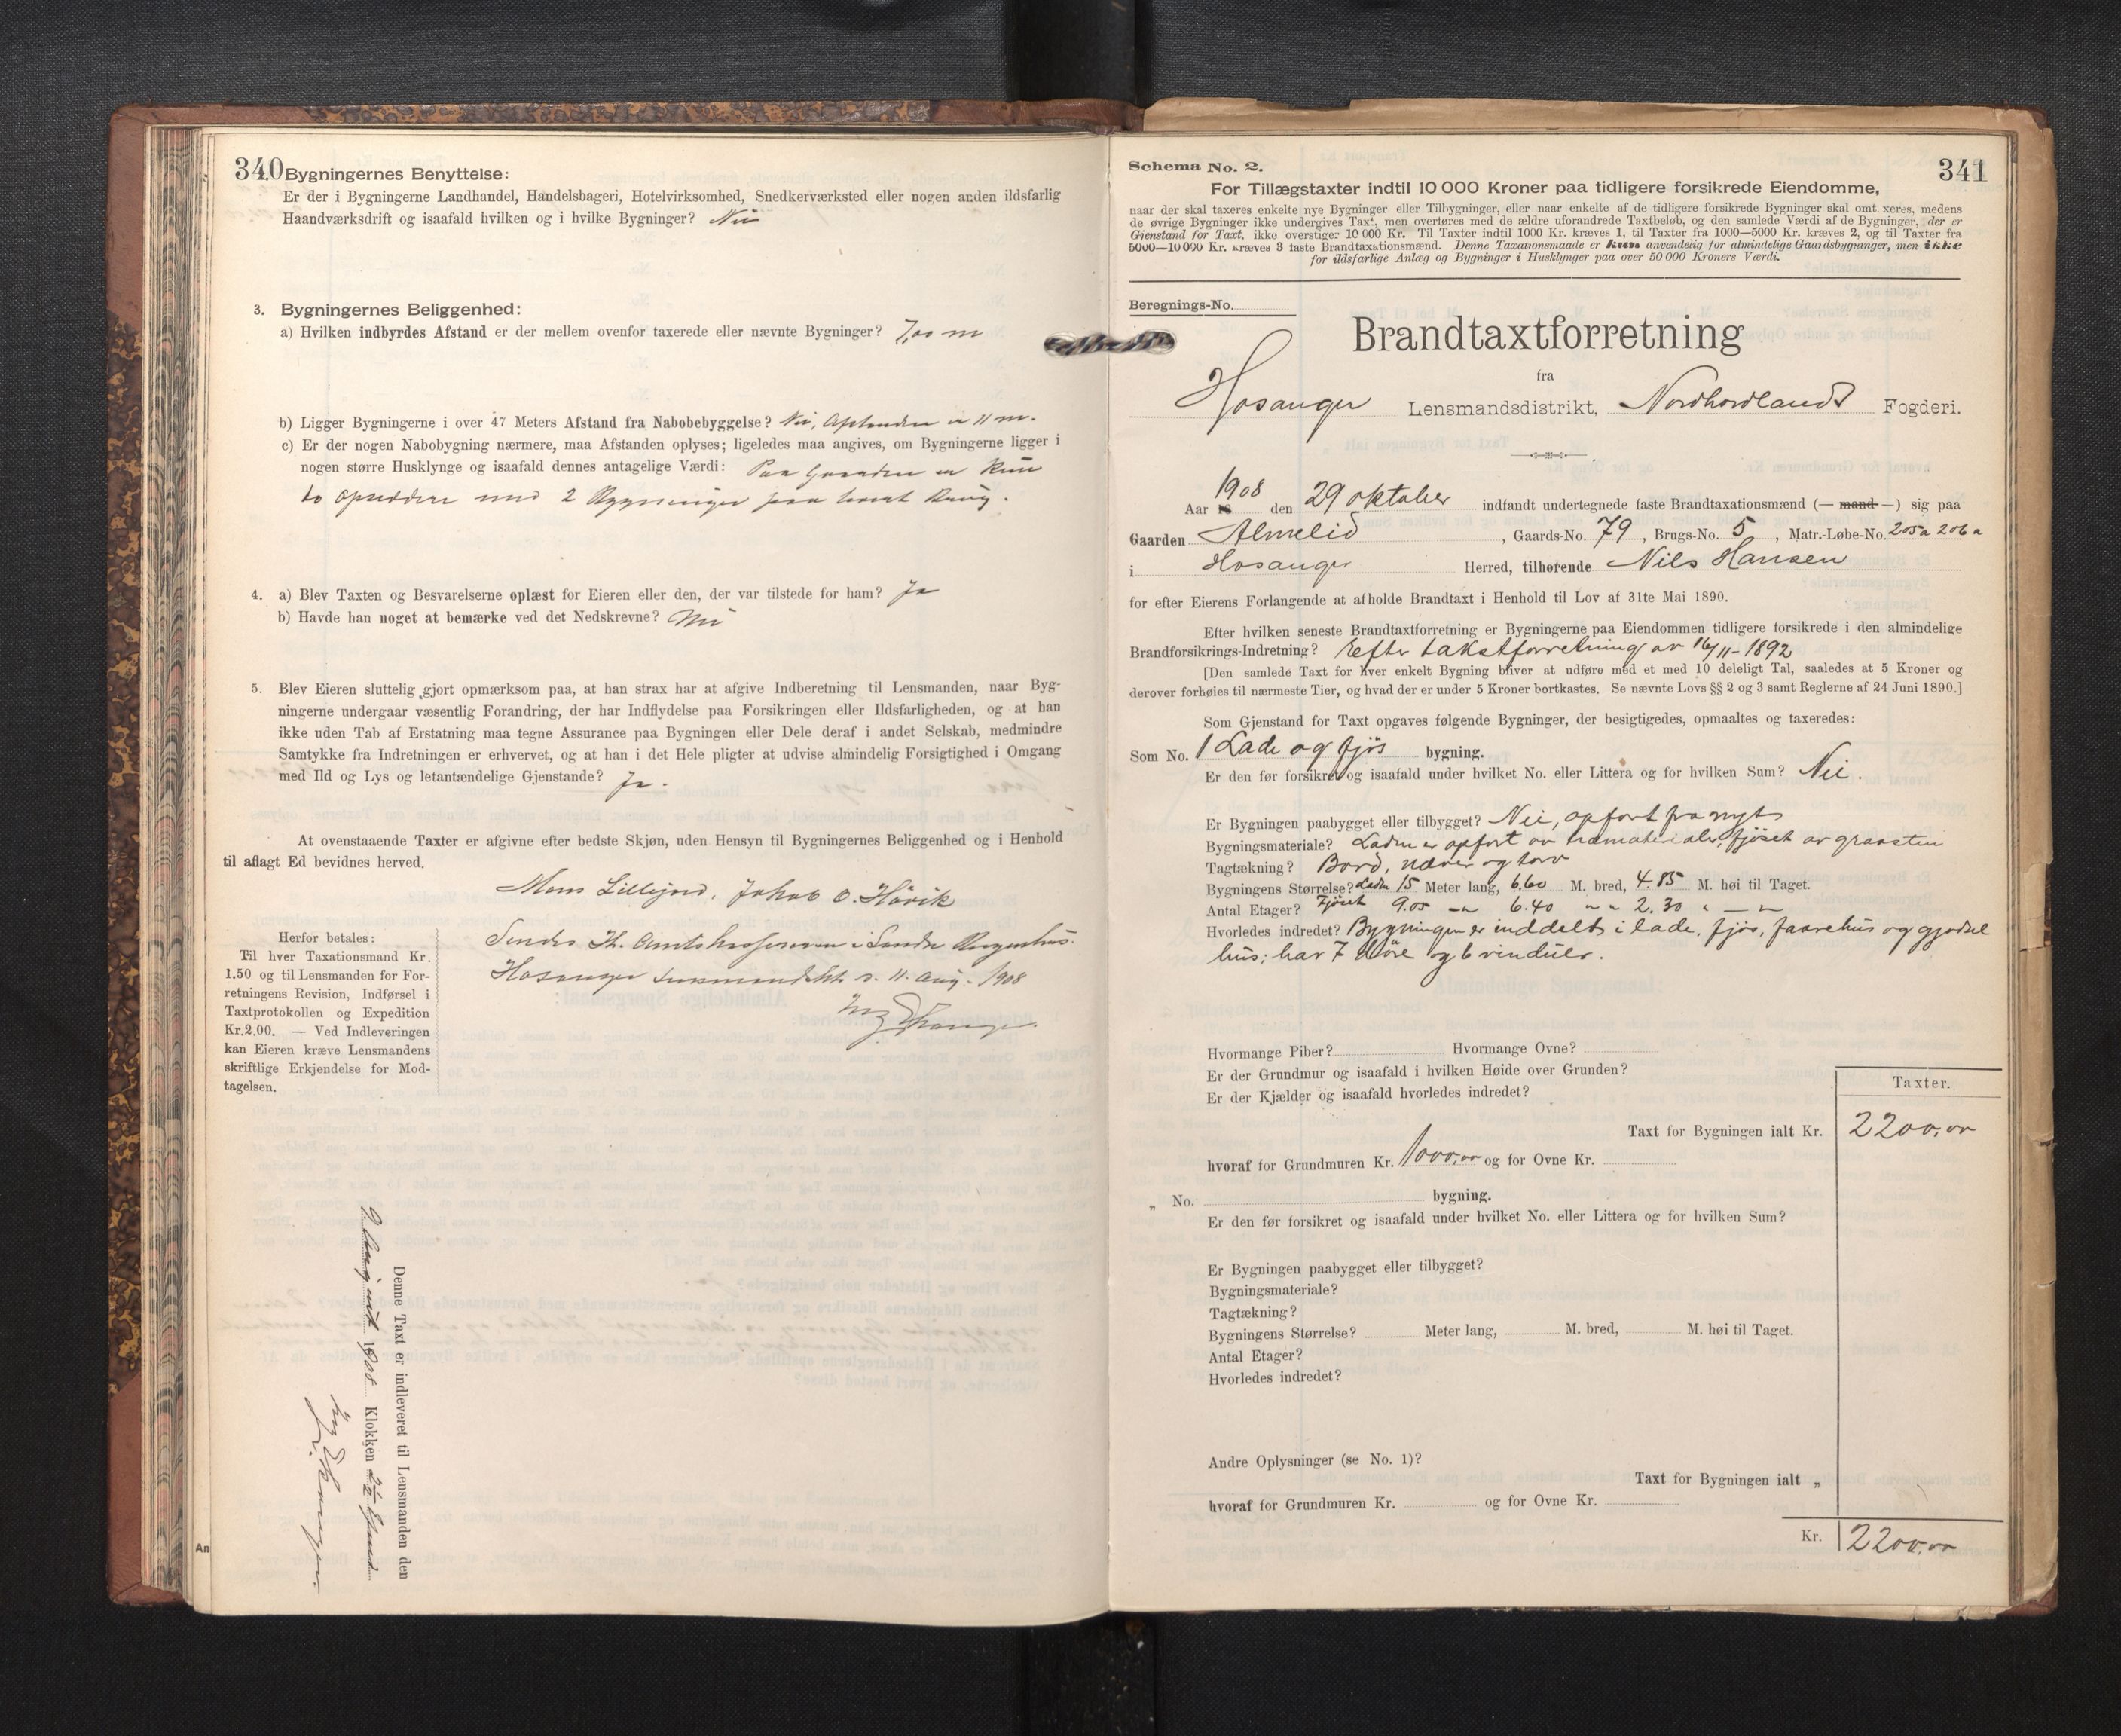 340
Bygningernes Benyttelse:
Er der i Bygningerne Landhandel, Handelsbageri, Hotelvirksomhed, Snedkerværksted eller nogen anden ildsfarlig
Haandværksdrift og isaafald hvilken og i hvilke Bygninger? Nei
3. Bygningernes Beliggenhed:
a) Hvilken indbyrdes Afstand er der mellem ovenfor taxerede eller nævnte Bygninger? 7,00 m
b) Ligger Bygningerne i over 47 Meters Afstand fra Nabobebyggelse? Nei, Afstanden er 11 m.
c) Er der nogen Nabobygning nærmere, maa Afstanden oplyses; ligeledes maa angives, om Bygningerne ligger i
nogen større Husklynge og isaafald dennes antagelige Værdi: Paa Gaarden er kun
to opsiddere med 2 Bygninger paa hvert Brug.
4. a) Blev Taxten og Besvarelserne oplæst for Eieren eller den, der var tilstede for ham? Ja
b) Havde han noget at bemærke ved det Nedskrevne? Nei
5. Blev Eieren sluttelig gjort opmærksom paa, at han strax har at afgive Indberetning til Lensmanden, naar Byg-
ningerne undergaar væsentlig Forandring, der har Indflydelse paa Forsikringen eller Ildsfarligheden, og at han
ikke uden Tab af Erstatning maa tegne Assurance paa Bygningen eller Dele deraf i andet Selskab, medmindre
Samtykke fra Indretningen er erhvervet, og at han i det Hele pligter at udvise almindelig Forsigtighed i Omgang
med Ild og Lys og letantændelige Gjenstande? Ja.
At ovenstaaende Taxter er afgivne efter bedste Skjøn, uden Hensyn til Bygningernes Beliggenhed og i Henhold
til aflagt Ed bevidnes herved.
Mons Lillejord, Jakob O. Håvik
Sendes Hr. Amtskassereren i Søndre Bergenhus.
Hosanger Lensmandsktr. d. 11. Aug. 1908
Herfor betales:
Til hver Taxationsmand Kr.
1.50 og til Lensmanden for For-
retningens Revision, Indførsel i
Taxtprotokollen og Expedition
Kr.2.00. — Ved Indleveringen
kan Eieren kræve Lensmandens
skriftlige Erkjendelse for Mod-
tagelsen.
Denne Taxt er indleveret til Lensmanden den
9 August 1908 Klokken 2½ Efmd.
An
Schema No. 2.
341
For Tillægstaxter indtil 10 000 Kroner paa tidligere forsikrede Eiendomme,
naar der skal taxeres enkelte nye Bygninger eller Tilbygninger, eller naar enkelte af de tidligere forsikrede Bygninger skal omt xeres, medens
de øvrige Bygninger ikke undergives Taxt, men overføres med de ældre uforandrede Taxtbeløb, og den samlede Værdi af de Bygninger, der er
Gjenstand for Taxt, ikke overstiger 10 000 Kr. Til Taxter indtil 1000 Kr. kræves 1, til Taxter fra 1000—5000 Kr. kræves 2, og til Taxter fra
5000—10 000 Kr. kræves 3 faste Brandtaxationsmænd. Denne Taxationsmaade er kun anvendelig for almindelige Gaardsbygninger, men ikke
for ildsfarlige Anlæg og Bygninger i Husklynger paa over 50 000 Kroners Værdi.
Beregnings-No.
Brandtaxtforretning
fra
Hosanger Lensmandsdistrikt, Nordhordlands Fogderi.
Aar 1908 den 29 oktober indfandt undertegnede faste Brandtaxationsmænd (— mand —) sig paa
Gaarden Almelid, Gaards-No. 79, Brugs-No. 5, Matr.-Løbe-No. 205a 206a
i Hosanger Herred, tilhørende Nils Hansen
for efter Eierens Forlangende at afholde Brandtaxt i Henhold til Lov af 31te Mai 1890.
Efter hvilken seneste Brandtaxtforretning er Bygningerne paa Eiendommen tidligere forsikrede i den almindelige
Brandforsikrings-Indretning? Efter takstforretning av 16/11-1892
[Den samlede Taxt for hver enkelt Bygning bliver at udføre med et med 10 deleligt Tal, saaledes at 5 Kroner og
derover forhøies til nærmeste Tier, og hvad der er under 5 Kroner bortkastes. Se nævnte Lovs §§ 2 og 3 samt Reglerne af 24 Juni 1890.]
Som Gjenstand for Taxt opgaves følgende Bygninger, der besigtigedes, opmaaltes og taxeredes:
Som No. 1 Lade og fjøs bygning.
Er den før forsikret og isaafald under hvilket No. eller Littera og for hvilken Sum? Nei.
Er Bygningen paabygget eller tilbygget? Nei, opført fra nyt
Bygningsmateriale? Laden er opført av træmaterialer, fjøset av graasten
Tagtækning? Bord, næver og torv
Bygningens Størrelse? Laden 15 Meter lang, 6.60 M. bred, 4.85 M. høi til Taget.
Antal Etager? Fjøset 9.05 — " 6.40 " " 2.30 " — "
Hvorledes indredet? Bygningen er inddelt i lade, fjøs, faarehus og gjødsel
hus; har 7 døre og 6 vinduer.
Hvormange Piber? Hvormange Ovne?
Er der Grundmur og isaafald i hvilken Høide over Grunden?
Er der Kjælder og isaafald hvorledes indredet?
Taxter.
Taxt for Bygningen ialt Kr. 2200,00
hvoraf for Grundmuren Kr. 1000,00 og for Ovne Kr.
„ No. bygning.
Er den før forsikret og isaafald under hvilket No. eller Littera og for hvilken Sum?
Er Bygningen paabygget eller tilbygget?
Bygningsmateriale?
Tagtækning?
Bygningens Størrelse? Meter lang, M. bred, M. høi til Taget.
Antal Etager?
Hvorledes indredet?
Andre Oplysninger (se No. 1)?
Taxt for Bygningen ialt „
hvoraf for Grundmuren Kr. og for Ovne Kr.
Kr. 2200,00